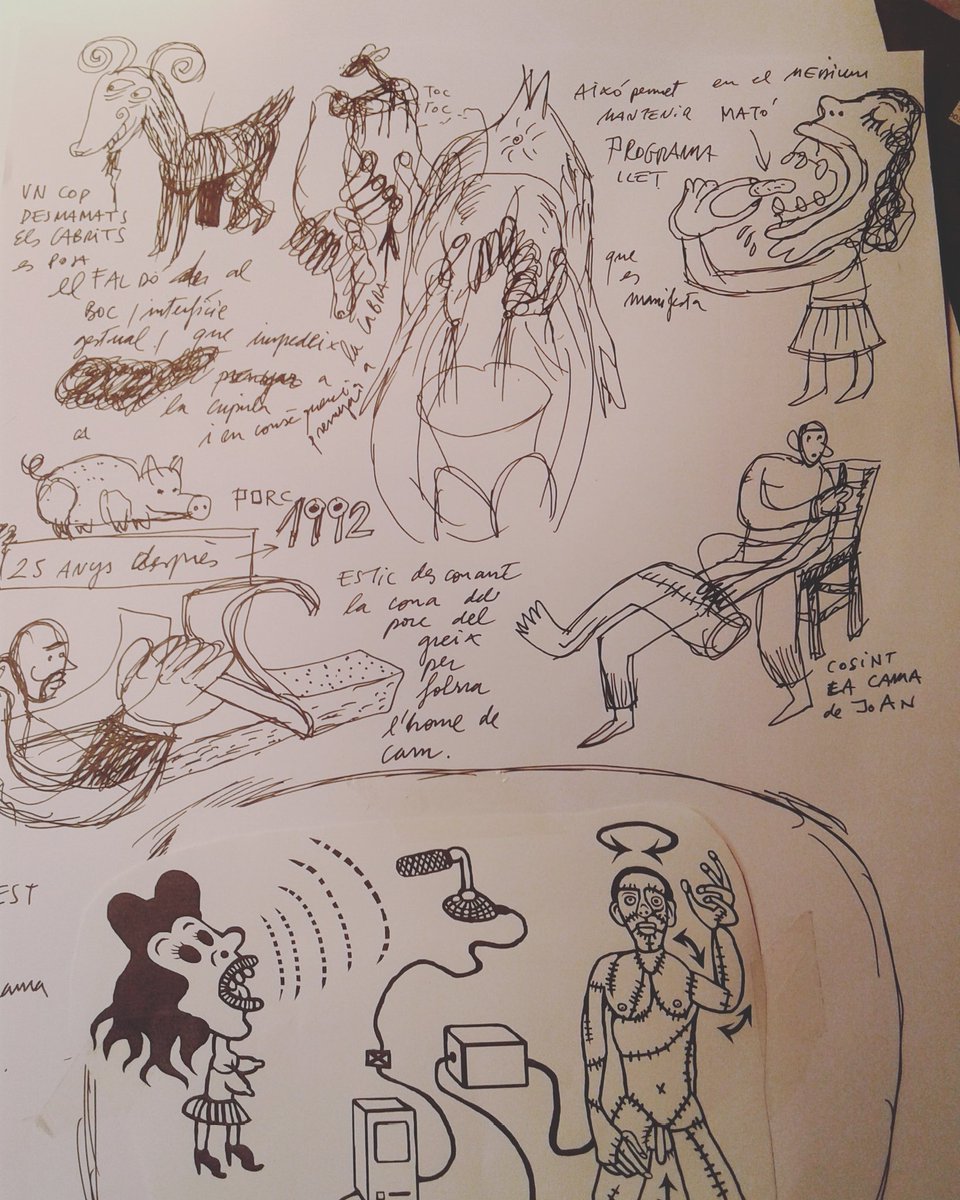 UN COP
DESMAMATS
Els CABRITS
es POSA
el FALDÓ al
BOC / interfície
gestual / que impedeix la
prenyar a
la cúpula
i en conseqüència
prenyar a
la CABRA
TOC
TOC
Això permet en el MEDIUM
MANTENIR MATÓ
PROGRAMA
LLET
que
es
manifesta
PORC 1992
25 ANYS després
ESTIC desconant
la cona del
porc del
greix
per
folrar
l'home de
carn.
COSINT
LA CAMA
de JOAN
EST